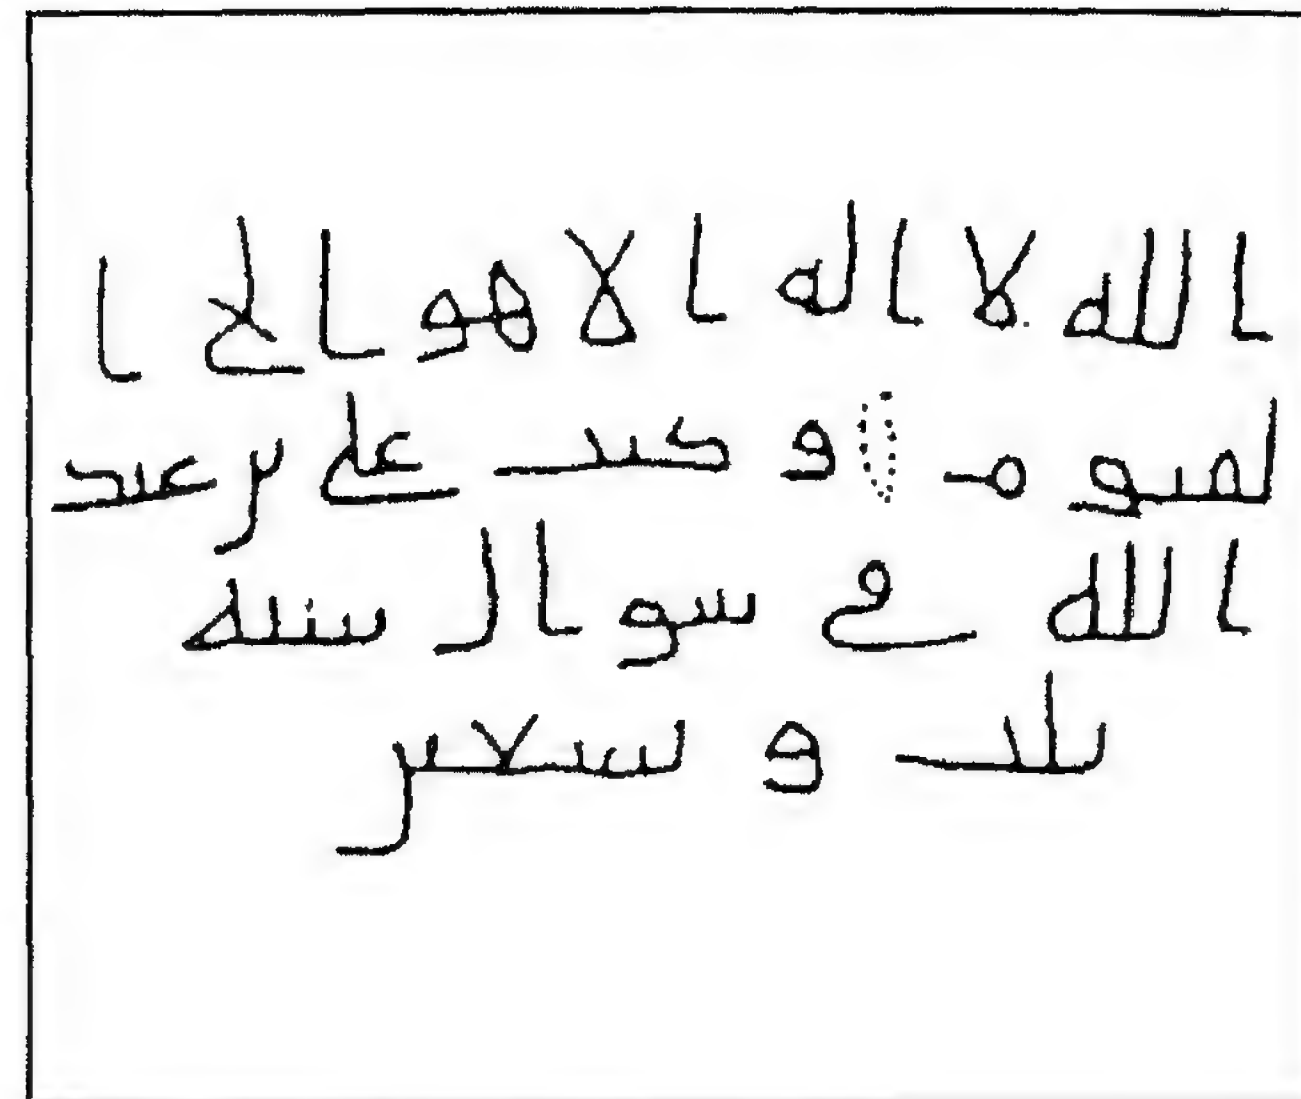 الله لا اله الا هو الحى ا
لقيوم وكتب على بن عبد
الله فى شوال سنه
ثلث وستين